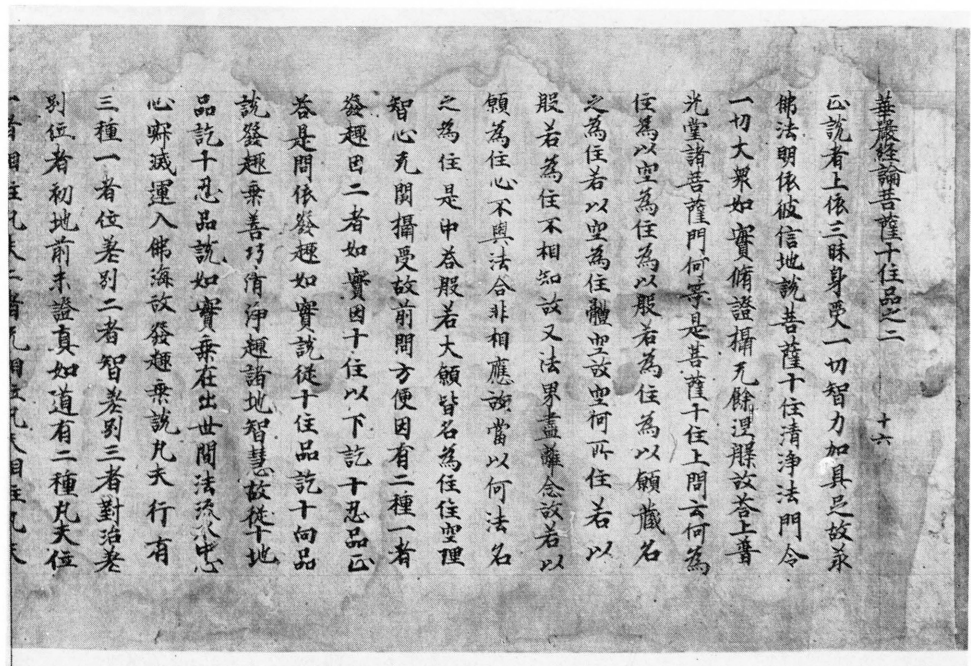 華嚴經論菩薩十住品之二　十六
正說者上依三昧身受一切智力加具足故承
佛法明依彼信地說菩薩十住清淨法門令
一切大衆如實脩證攝无餘涅槃故荅上普
光堂諸菩薩門何等是菩薩十住上問云何為
住為以空為住為以般若為住為以願藏名
之為住若以空為住體空故空何所住若以
般若為住不相知故又法界盡離念故若以
願為住心不與法合非相應故當以何法名
之為住是中荅般若大願皆名為住住空理
智心无閡攝受故前問方便因有二種一者
發趣因二者如實因十住以下訖十忍品正
荅是問依發趣如實說從十住品訖十向品
說發趣乘善巧脩淨趣諸地智慧故從十地
品訖十忍品說如實乘在出世間法流水中心
心寂滅運入佛海故發趣乘說凡夫行有
三種一者位差別二者智差別三者對治差
別位者初地前未證真如道有二種凡夫位
一者相住凡夫二者无相住凡夫相住凡夫